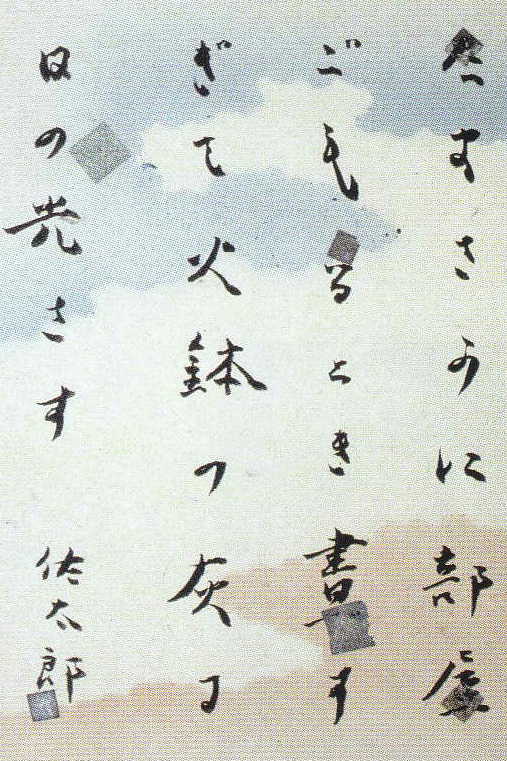 たまさかに部屋
ごもるとき晝す
ぎて火鉢の灰に
日の光さす　佐太郎